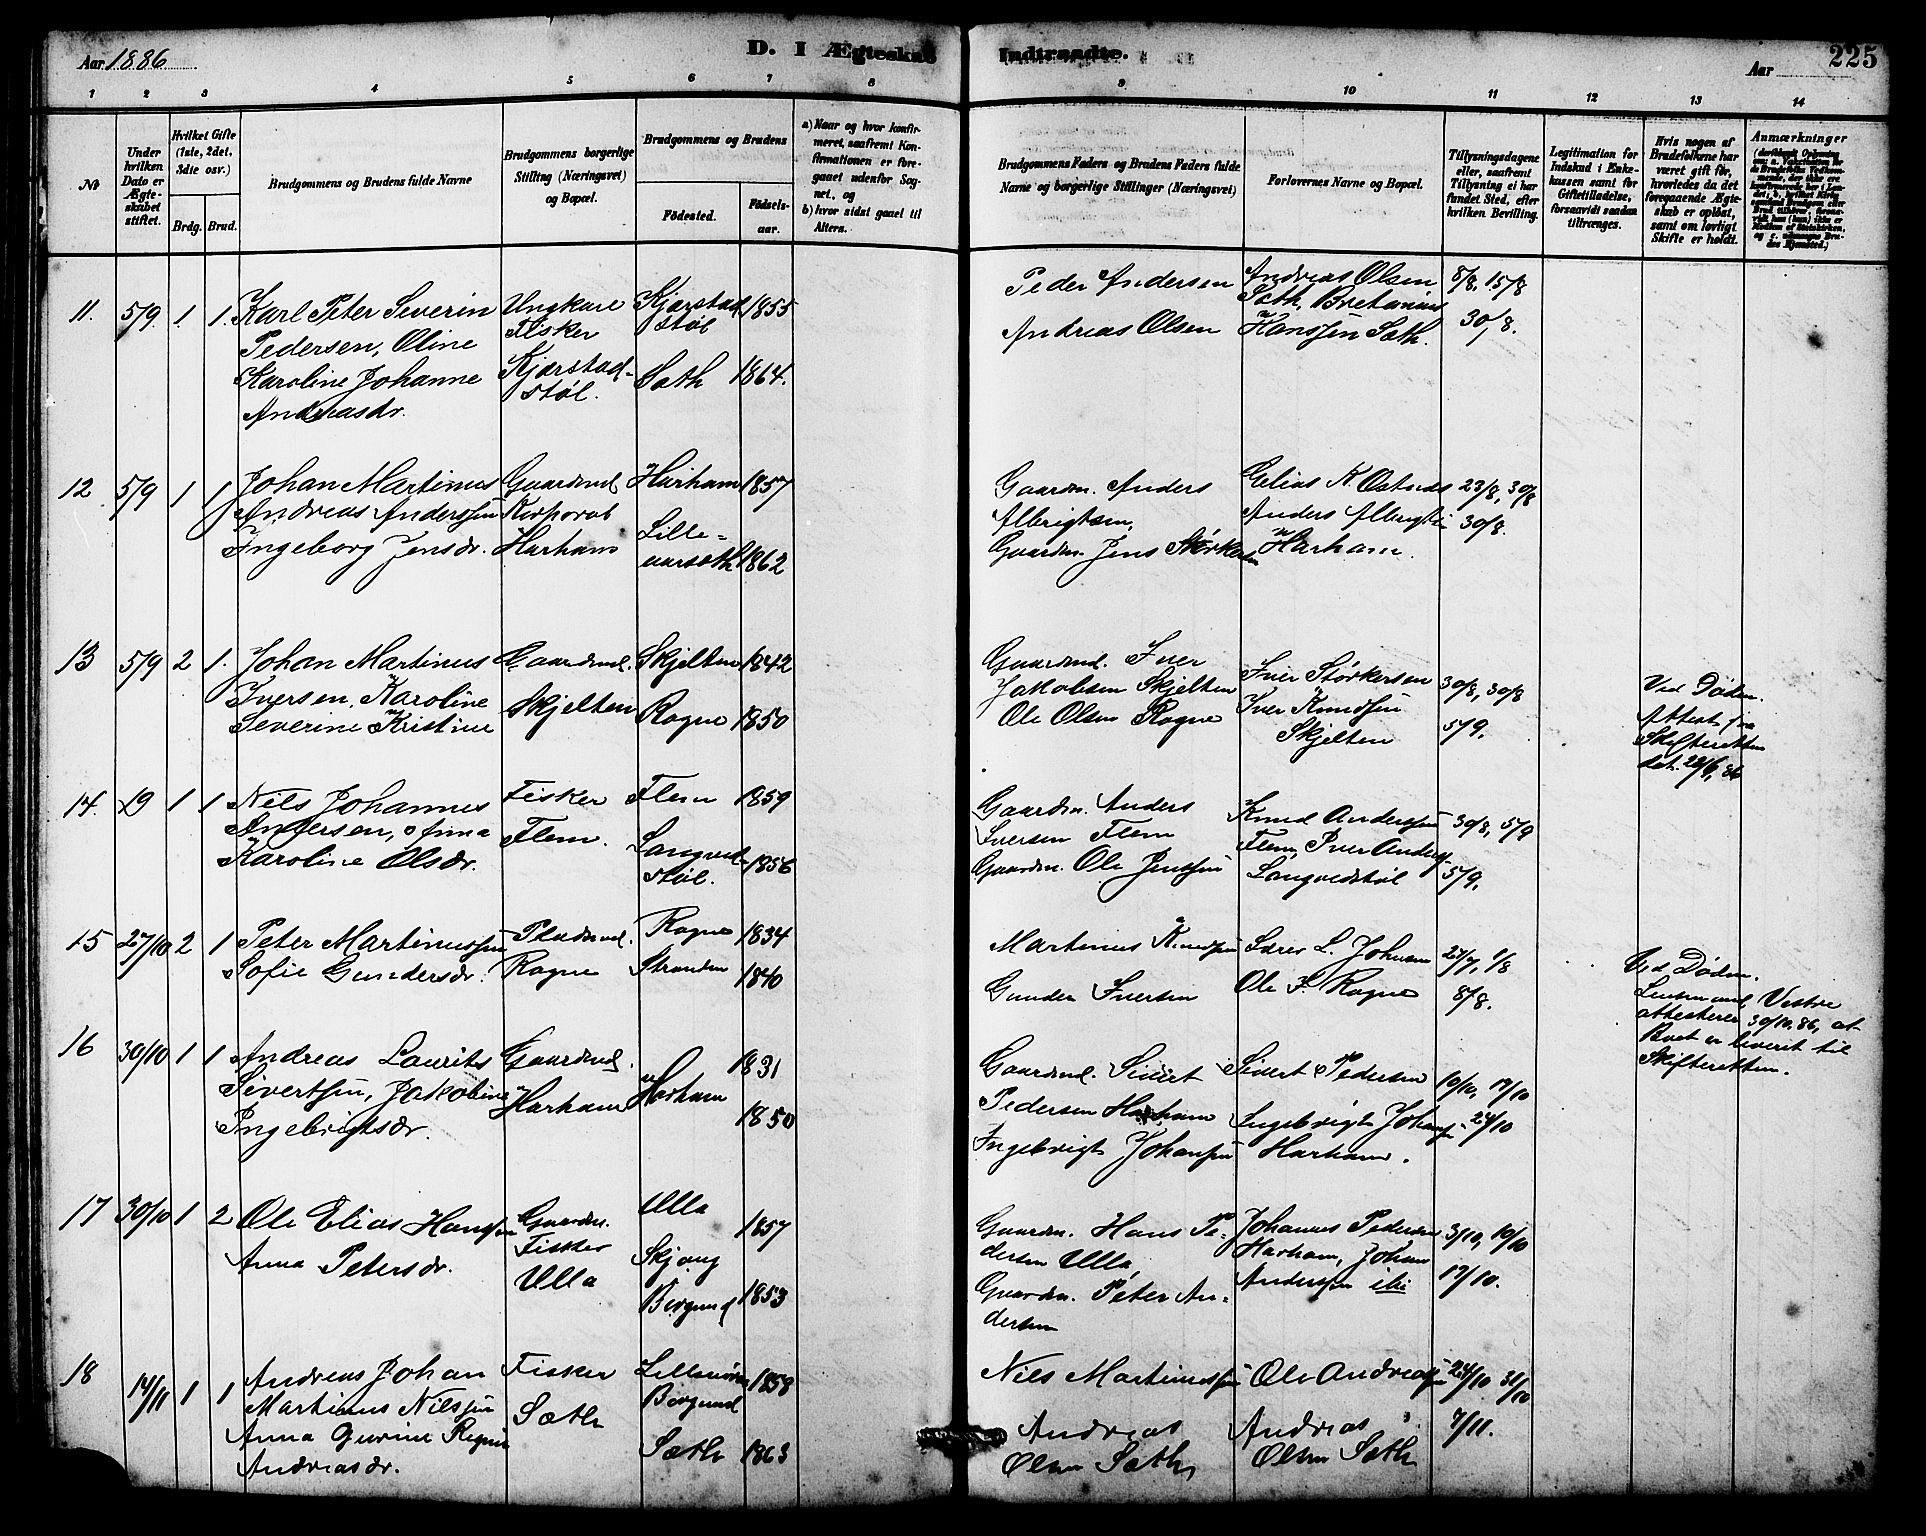 Aar 1886
D. I Ægteskab
Indtraadte.
225
Aar
1 2 3 4 5 6 7 8
9 10 11 12 13 14
№
Under hvilken Dato er Ægteskabet stiftet.
Hvilket Gifte (1ste, 2det, 3die osv.)
Brdg. Brud.
Brudgommens og Brudens fulde Navne
Brudgommens borgerlige Stilling (Næringsvei) og Bopæl.
Brudgommens og Brudens
Fødested.
Fødsels-aar.
a) Naar og hvor konfirmeret, saafremt Konfirmationen er foregaaet udenfor Sognet, og
b) hvor sidst gaaet til Alters.
Brudgommens Faders og Brudens Faders fulde Navne og borgerlige Stillinger (Næringsvei)
Forlovernes Navne og Bopæl.
Tillysningsdagene eller, saafremt Tillysning ei har fundet Sted, efter hvilken Bevilling.
Legitimation for Indskud i Enkekassen samt for Giftetilladelse, forsaavidt saadan tiltrænges.
Hvis nogen af Brudefolkene har været gift før, hvorledes da det foregaaende Ægteskab er opløst, samt om lovligt Skifte er holdt.
Anmærkninger
11. 5/9 1. 1. Karl Peter Severin Ungkarl Kjærstad 1855
Pedersen, Oline Fisker støl
Karoline Johanne Kjærstad- Sæth 1864.
Andreasdr. støl.
Peder Andersen Andreas Olsen 8/8, 15/8
Sæth, Bretanius
Andreas Olsen Hanssen Sæth. 30/8.
12 5/9 1 1 Johan Martinus Gaardmd Harham 1857
Andreas Anderssen Korporal Lille-
Ingeborg Jensdr. Harham 1862
Gaardm. Anders Elias K. 23/8, 30/8
Albrigtsen, Anders Albrigtsen 30/8.
Gaardm. Jens Størkersen Harham.
13 5/9 2 1. Johan Martinus Gaardmd. Skjelten 1842
Iversen, Karoline Skjelten Rogne 1850
Severine Kristine
Gaardmd. Iver Iver Størkersen 30/8, 30/8
Jakobsen Skjelten Iver Knudsen
Ole Olsen Rogne Skjelten 5/9.
Ved Døden.
Attest fra
Skifteretten
dat. 28/6, 86
14. 1 1 Nils Johannes Fisker Flem 1859
Andersen, Flem. Longved-
Karoline Olsdr. støl. 1856
Gaardm. Anders Knud Anderssen 30/8, 5/9
Iversen Flem Flem, Iver Anders
Gaardm. Ole Jenssen Longvedstøl 5/9.
15 27/10 2 1 Peter Martinussen Pladsmd. Rogne 1834
Sofie Gundersdr. Rogne Stranden 1840
Martinus Knudsen L. Johnsen 27/7, 1/8
Gunder Iversen Ole I. Rogne 8/8.
Ved Døden.
Lensmand Vestre
attesterer 30/10. 86, at
Boet er leveret til
Skifteretten.
16 30/10 1 1 Andreas Laurits Gaardmd. 1831
Sivertsen, Jakobine Harham Harham
Ingebrigtsdr. 1850
Gaardmd. Sivert Sivert Pedersen 10/10, 17/10
Pedersen Harham Ingebrigt Johansen 24/10
Ingebrigt Johansen Harham.
17 30/10 1 2 Ole Elias Hanssen Gaardm. Ulla 1857
Anna Petersdr. Fisker Skjong
Ulla Borgund 1853
Gaardm. Hans Pe- Johannes Pedersen 3/10, 10/10
dersen Ulla, Harham, Johan
Gaardm. Peter An- Anderssen ibi 17/10.
dersen
18 14/11 1 1 Andreas Johan Fisker 1858
Martinus Nilssen Sæth Borgund
Anna Gurine Regine Sæth 1863
Andreasdr.
Nils Martinussen Ole Andreassen 24/10 31/10
Andreas Andreas 7/11.
Olsen Sæth Olsen Sæth